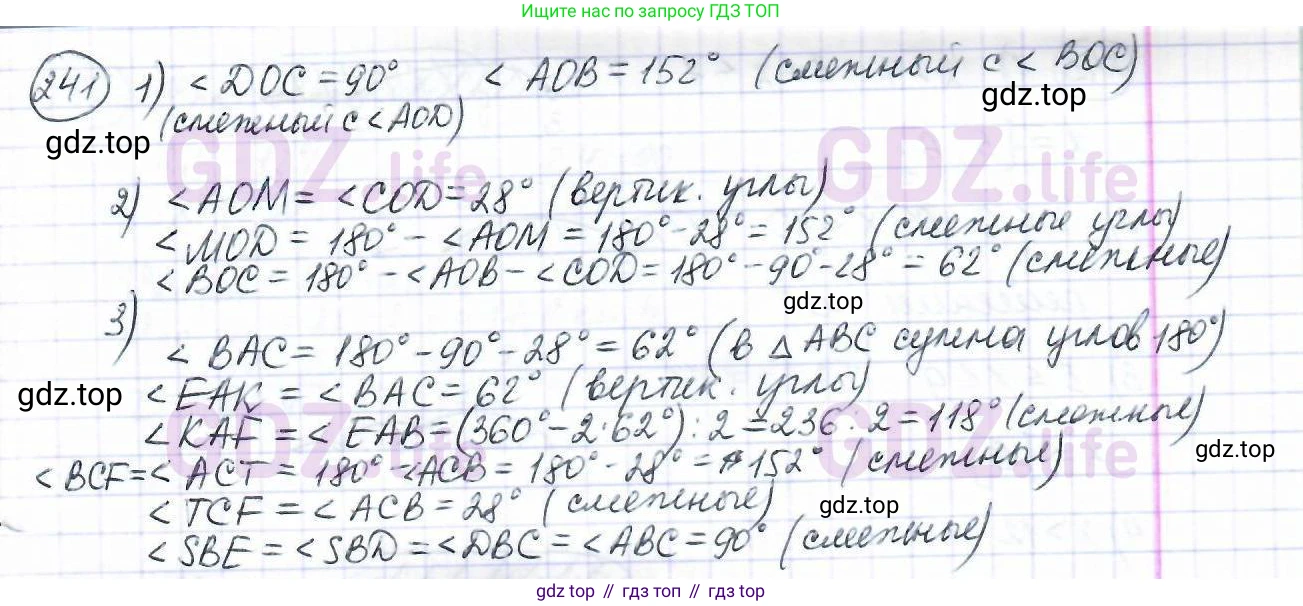 Ищите нас по запросу ГДЗ ТОП
241 1) < DOC = 90° < AOB = 152° (смежный с < BOC)
(смежный с < AOD)
gdz.top
gdz.top
GDZ.life
GDZ.life
2) < AOM = < COD = 28° (вертик. углы)
< MOD = 180° - < AOM = 180° - 28° = 152° (смежные углы)
< BOC = 180° - < AOB - < COD = 180° - 90° - 28° = 62° (смежные)
gdz.top
3)
< BAC = 180° - 90° - 28° = 62° (в △ ABC сумма углов 180°)
gdz.top
< EAK = < BAC = 62° (вертик. углы)
< KAF = < EAB = (360° - 2·62°) : 2 = 236 : 2 = 118° (смежные)
GDZ.life
GDZ.life
gdz.top
< BCF = < ACT = 180° - < ACB = 180° - 28° = 152° (смежные)
< TCF = < ACB = 28° (смежные)
gdz.top
< SBE = < SBD = < DBC = < ABC = 90° (смежные)
gdz.top // гдз топ // gdz.top